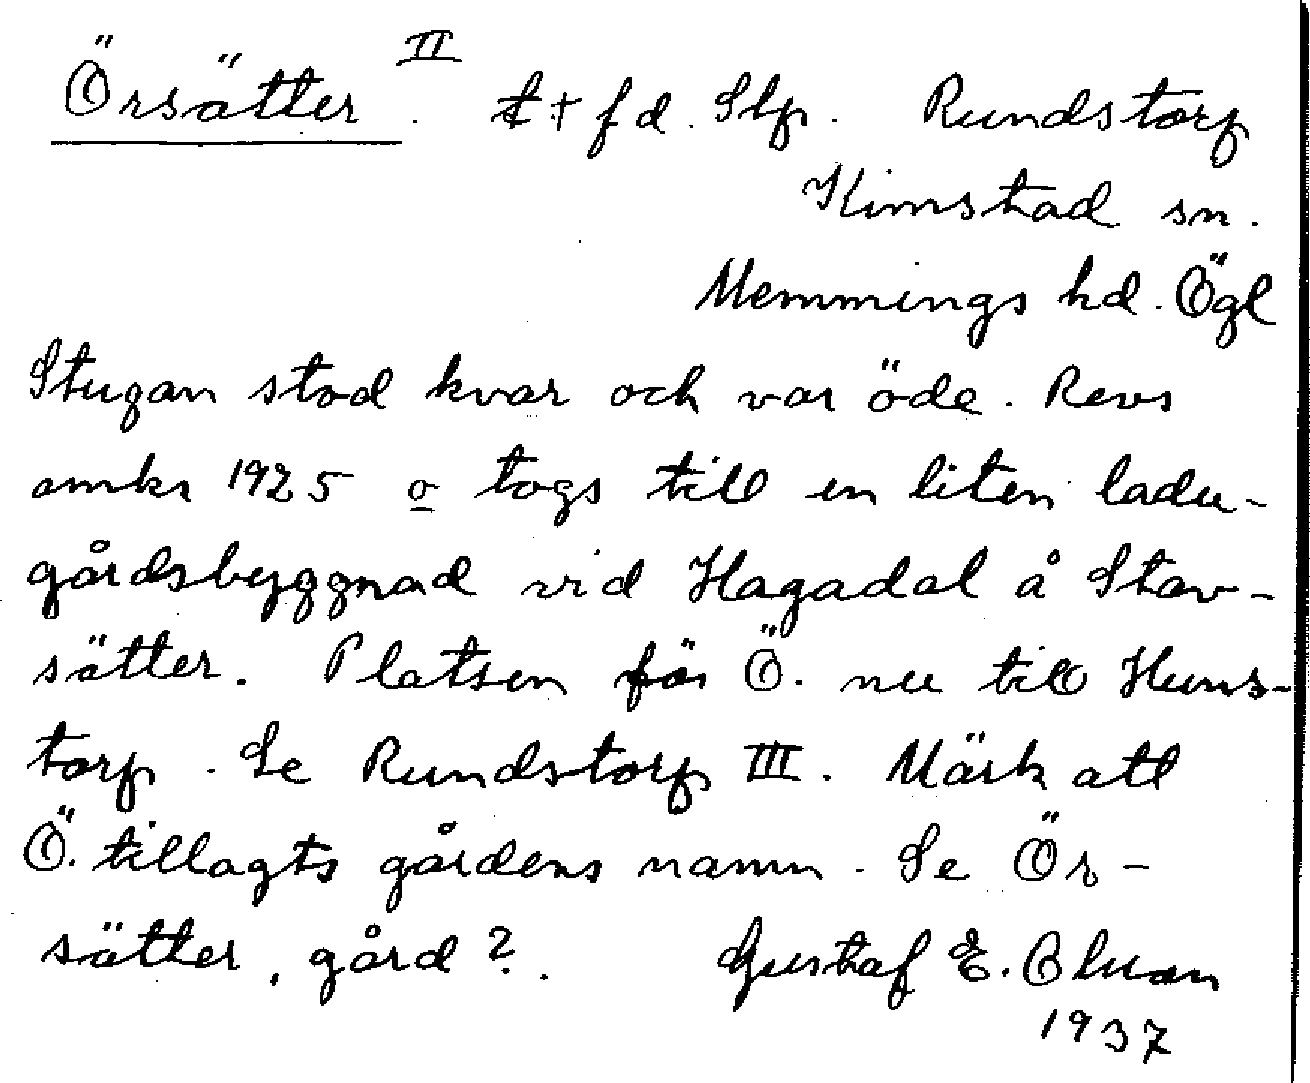 Örsätter II. t+ f d. Stp. Rundstorp
Kimstad sn.
Memmings hd. Ögl
Stugan stod kvar och var öde. Revs
omkr 1925 o togs till en liten ladu-
gårdsbyggnad vid Hagadal å Stav-
sätter. Platsen för Ö. nu till Huns-
torp. Se Rundstorp III. Märk att
Ö. tillagts gårdens namn. Se Ör-
sätter, gård?. Gustaf E.
1937